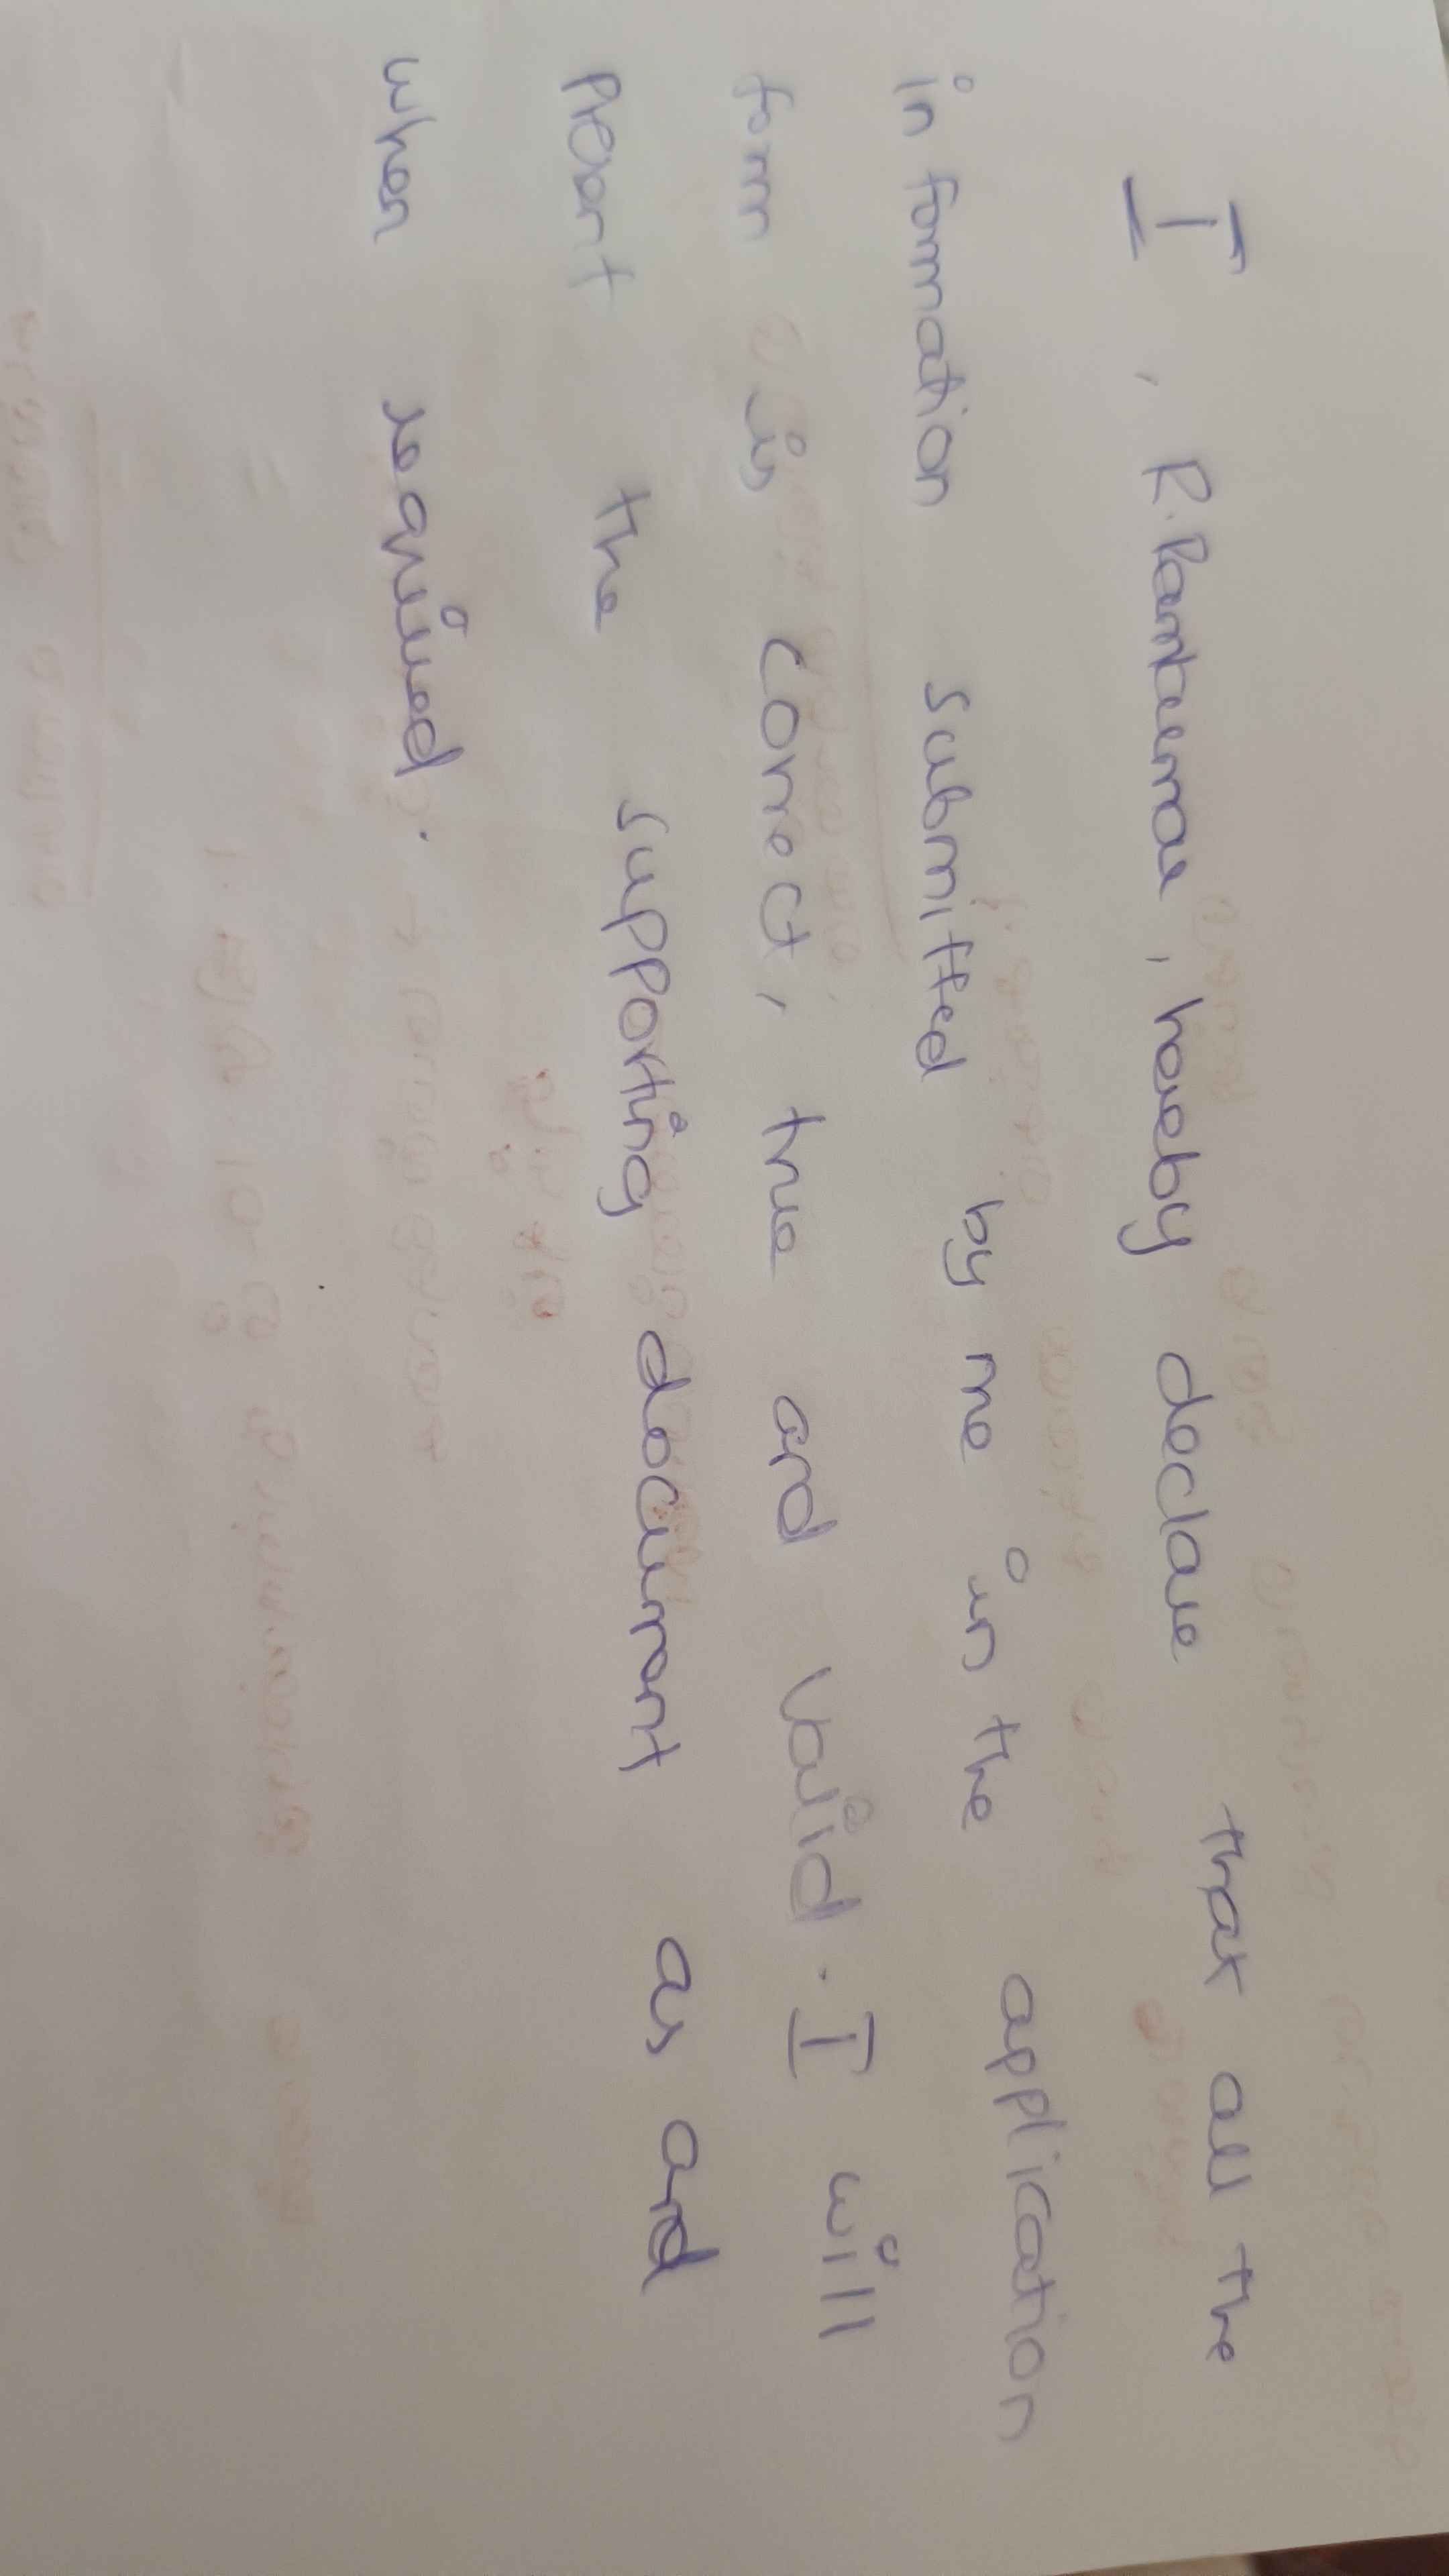 I, R. Ramkumar, hereby declare that all the
information submitted by me in the application
form is correct, true and valid. I will
the supporting document as and
when required.